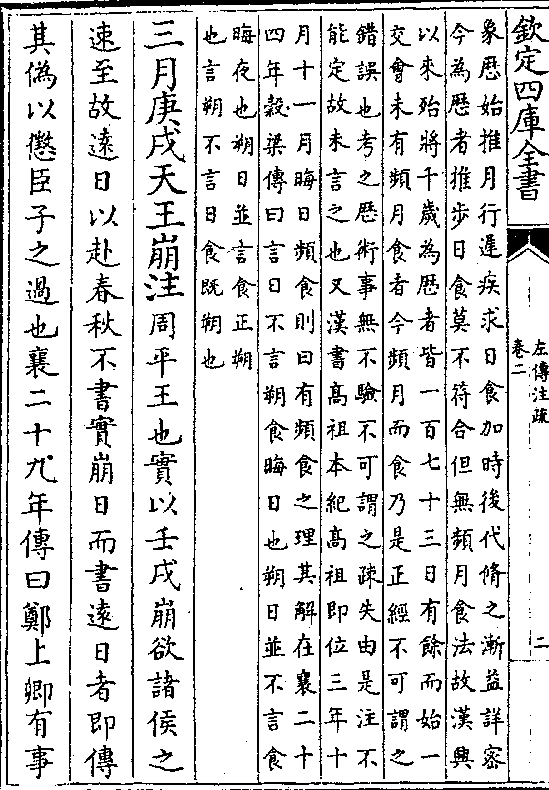 欽定四庫全書
左傳注疏
卷二
二
象歴始推月行遲疾求日食加時後代脩之漸益詳密
今為歴者推步日食莫不符合但無頻月食法故漢興
以來殆將千歲為歴者皆一百七十三日有餘而始一
交會未有頻月食者今頻月而食乃是正經不可謂之
錯誤也考之歴術事無不驗不可謂之疎失由是注不
能定故未言之也又漢書髙祖本紀髙祖即位三年十
月十一月晦日頻食則曰有頻食之理其解在襄二十
四年榖梁傳曰言日不言朔食晦日也朔日並不言食
晦夜也朔日並言食正朔
也言朔不言日食既朔也
三月庚戌天王崩注周平王也實以壬戌崩欲諸侯之
速至故遠日以赴春秋不書實崩日而書遠日者即傳
其偽以懲臣子之過也襄二十九年傳曰鄭上卿有事